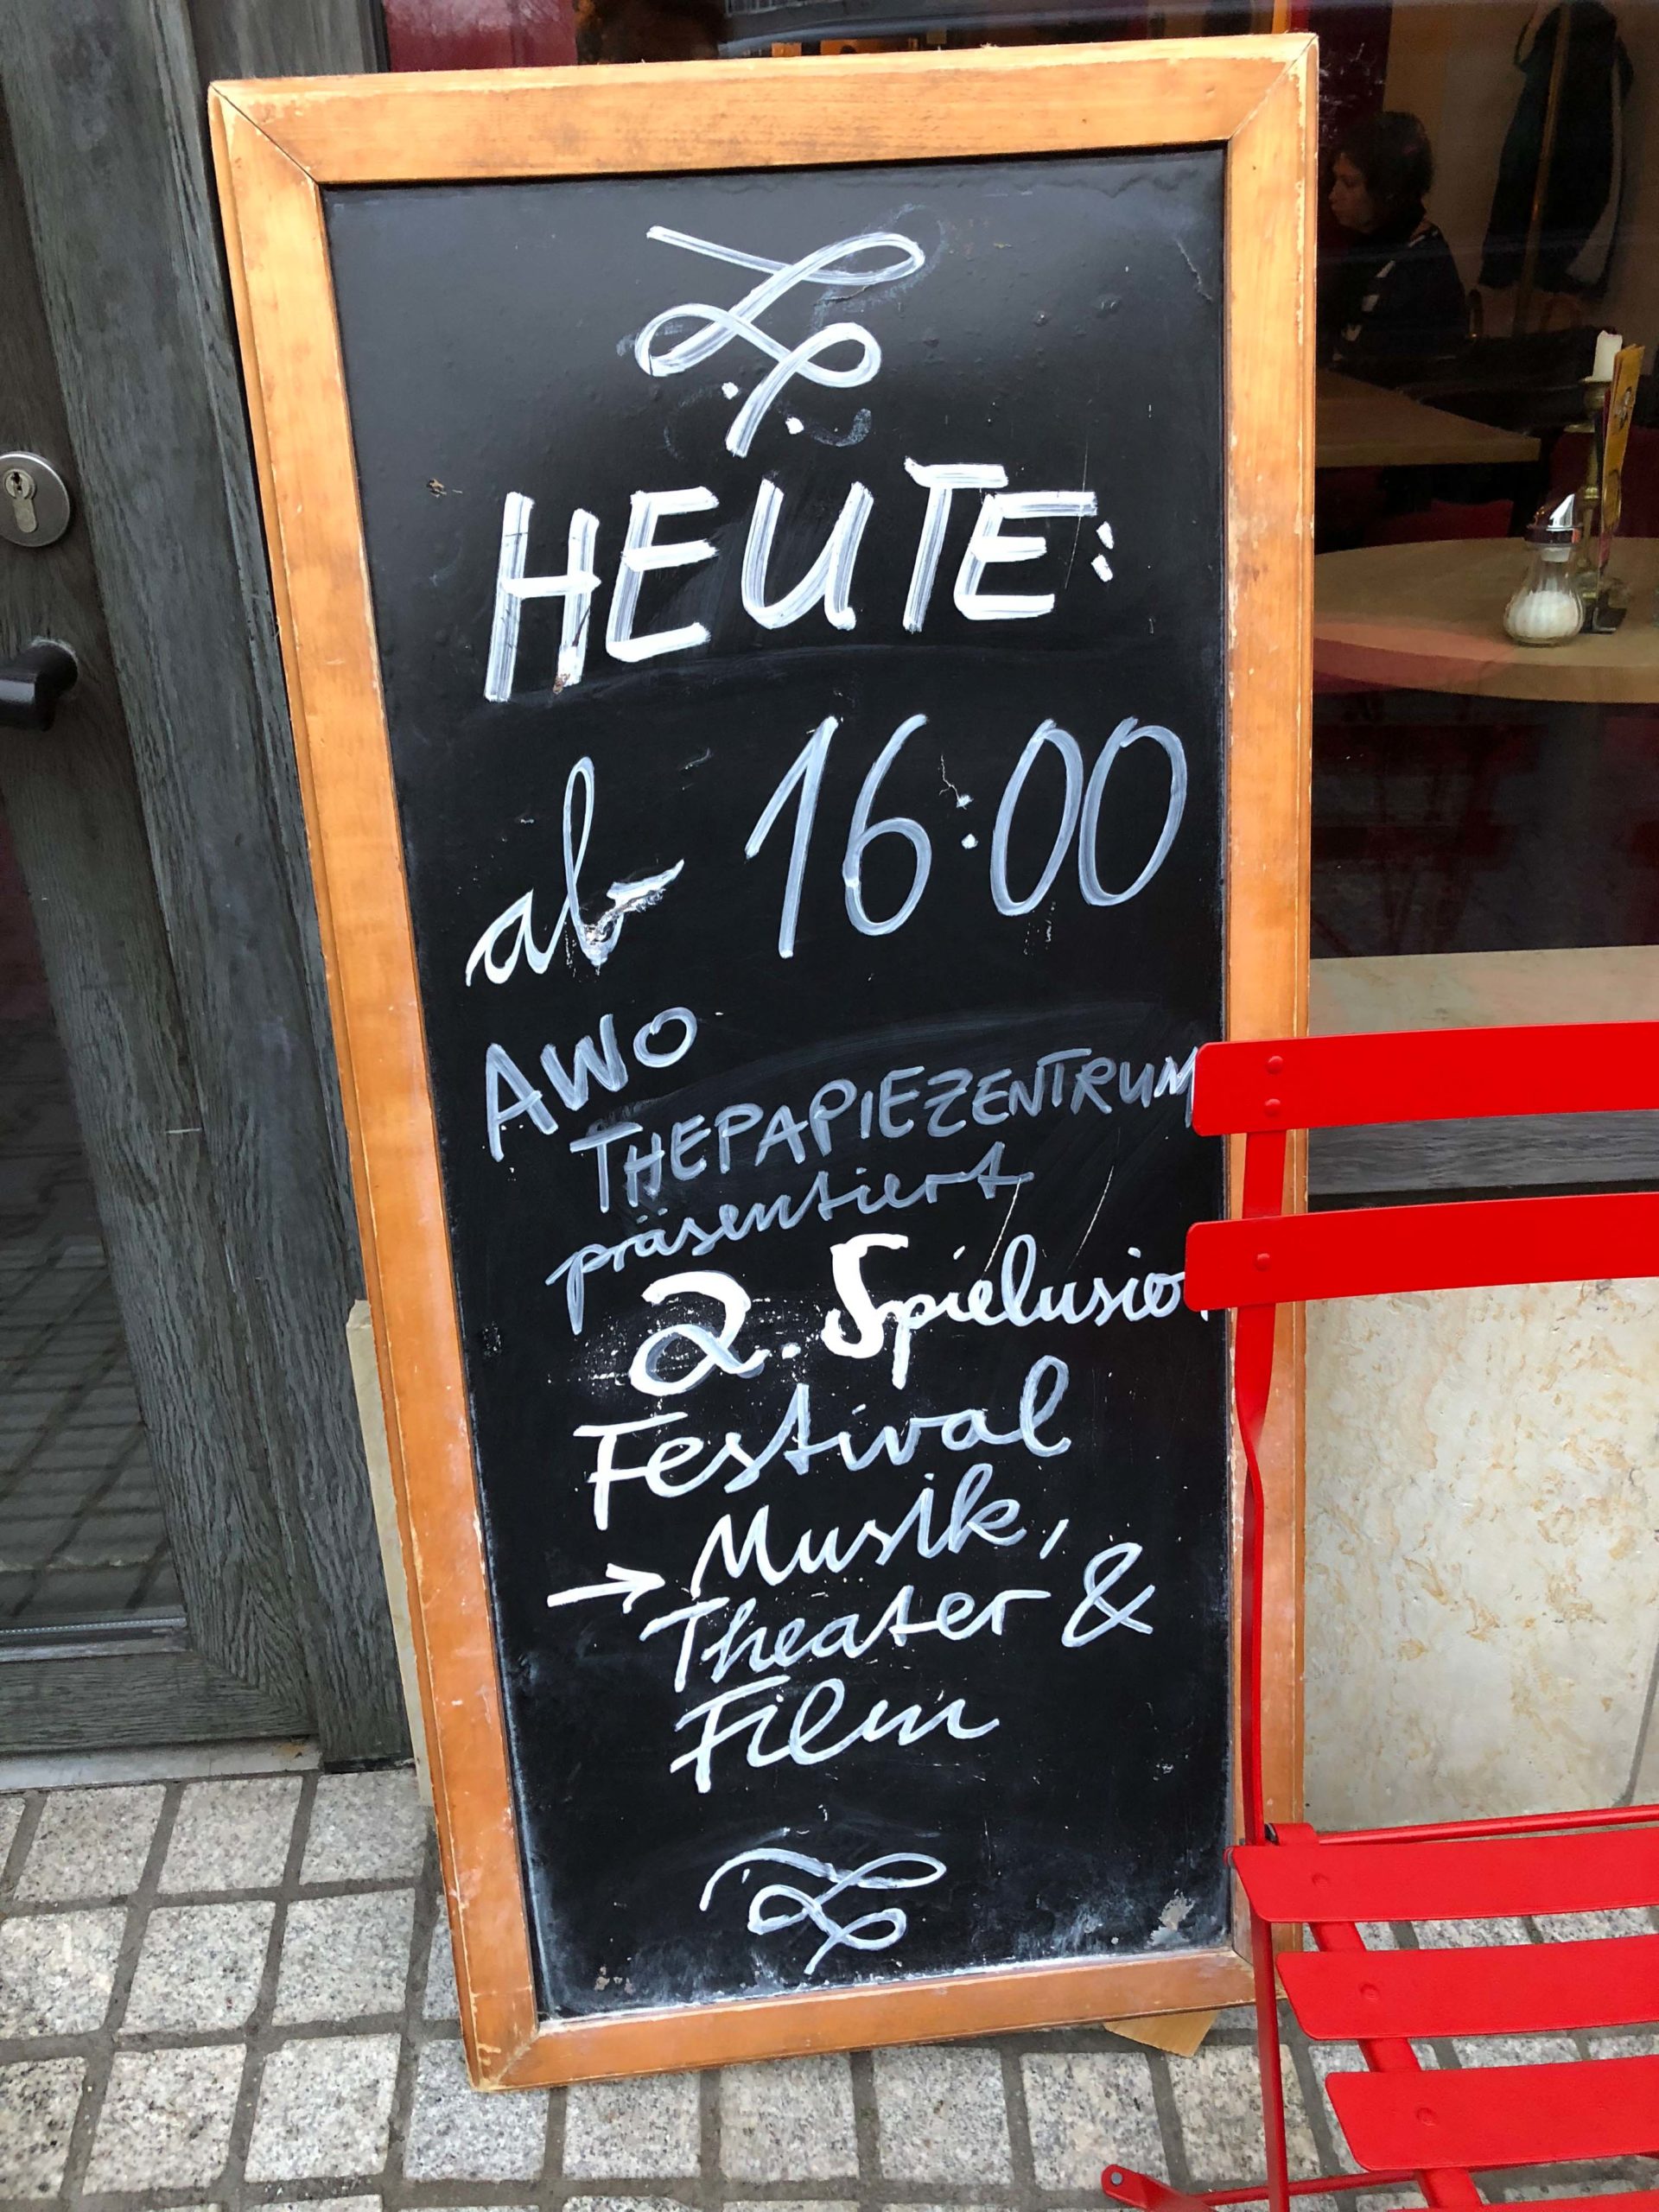 HEUTE:
ab 16:00
AWO
THEPAPIEZENTRUM
präsentiert
2. Spielusion
Festival
→ Musik,
Theater &
Film